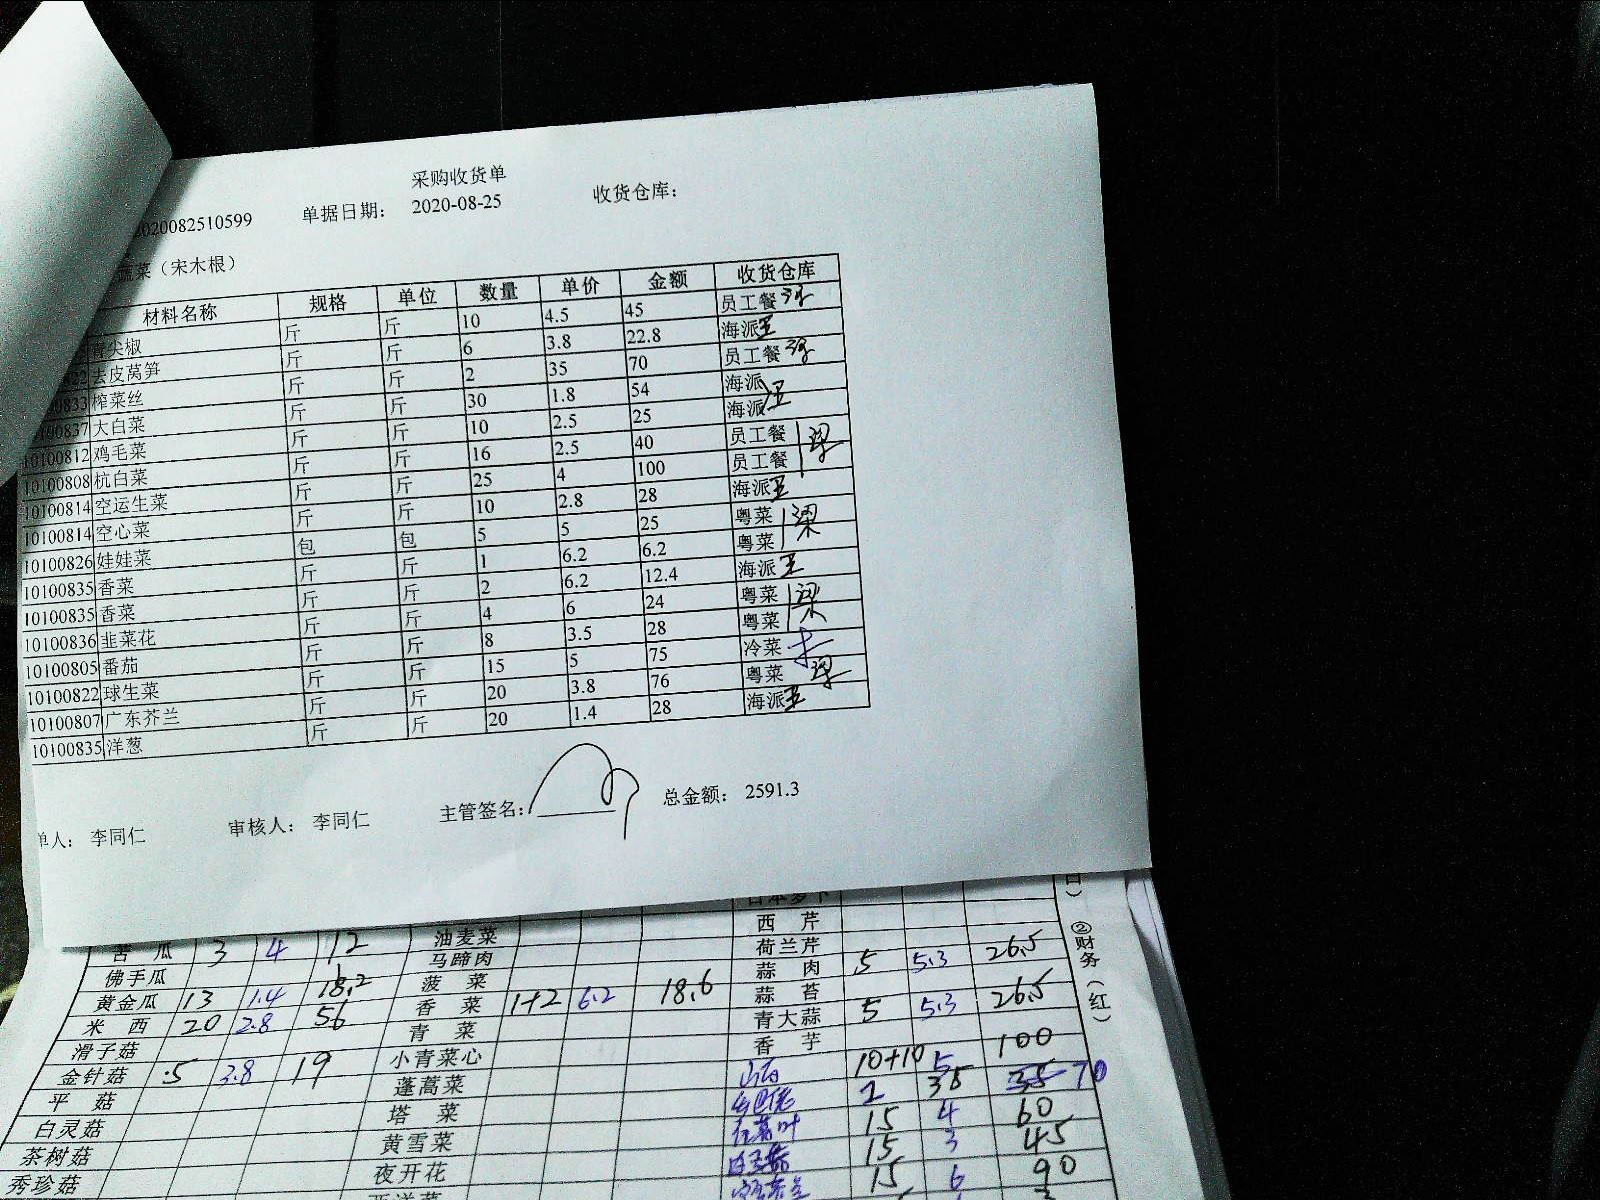 采购收货单
2020082510599 单据日期: 2020-08-25 收货仓库:
蔬菜（宋木根）
材料名称 规格 单位 数量 单价 金额 收货仓库
青尖椒 斤 斤 10 4.5 45 员工餐
822 去皮莴笋 斤 斤 6 3.8 22.8 海派 王
00833 榨菜丝 斤 斤 2 35 70 员工餐
10100837 大白菜 斤 斤 30 1.8 54 海派
10100812 鸡毛菜 斤 斤 10 2.5 25 海派 王
10100808 杭白菜 斤 斤 16 2.5 40 员工餐
10100814 空运生菜 斤 斤 25 4 100 员工餐
10100814 空心菜 斤 斤 10 2.8 28 海派 王
10100826 娃娃菜 包 包 5 5 25 粤菜 梁
10100835 香菜 斤 斤 1 6.2 6.2 粤菜
10100835 香菜 斤 斤 2 6.2 12.4 海派 王
10100836 韭菜花 斤 斤 4 6 24 粤菜 梁
10100805 番茄 斤 斤 8 3.5 28 粤菜
10100822 球生菜 斤 斤 15 5 75 冷菜
10100807 广东芥兰 斤 斤 20 3.8 76 粤菜 梁
10100835 洋葱 斤 斤 20 1.4 28 海派 王
单人: 李同仁 审核人: 李同仁 主管签名: 总金额: 2591.3
西 芹
苦 瓜 3 4 12 油麦菜 荷兰芹
佛手瓜 马蹄肉 蒜 肉 5 5.3 26.5
黄金瓜 13 1.4 18.2 菠 菜 蒜 苔
米 西 20 2.8 56 香 菜 1+2 6.2 18.6 青大蒜 5 5.3 26.5
滑子菇 青 菜 香 芋
金针菇 5 3.8 19 小青菜心 10+10 5 100
平 菇 蓬蒿菜 2 35 70
白灵菇 塔 菜 15 4 60
茶树菇 黄雪菜 15 3 45
秀珍菇 夜开花 15 6 90
②财务（红）